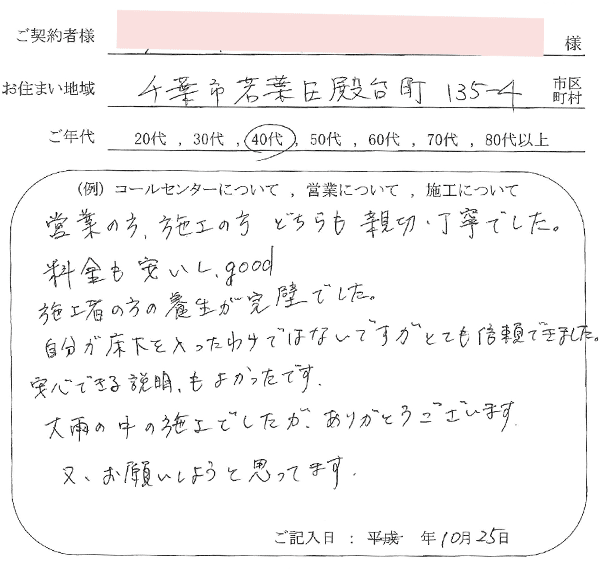 ご契約者様 様
お住まい地域 千葉市若葉区殿台町 135-4 市区町村
ご年代 20代 , 30代 , 40代 , 50代 , 60代 , 70代 , 80代以上
(例) コールセンターについて , 営業について , 施工について
営業の方、施工の方 どちらも 親切・丁寧でした。
料金も安いし、good
施工者の方の養生が完璧でした。
自分が床下を入ったわけではないですがとても信頼できました。
安心できる説明、もよかったです.
大雨の中の施工でしたが、ありがとうございます.
又、お願いしようと思ってます.
ご記入日 : 平成 年10月25日